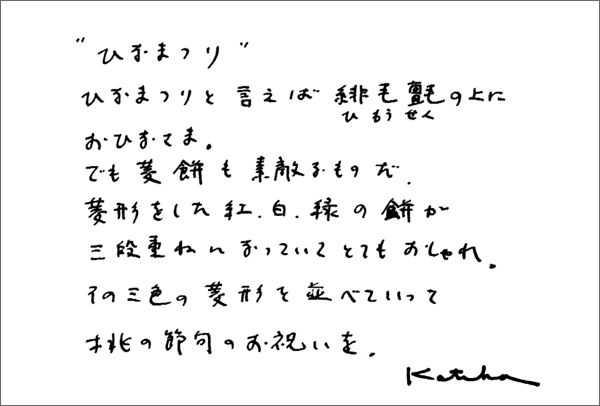 "ひなまつり"
ひなまつりと言えば緋毛氈の上に
ひもうせん
おひなさま。
でも菱餅も素敵なものだ。
菱形をした紅.白.緑の餅が
三段重ねになっていてとてもおしゃれ。
その三色の菱形を並べていって
桃の節句のお祝いを。